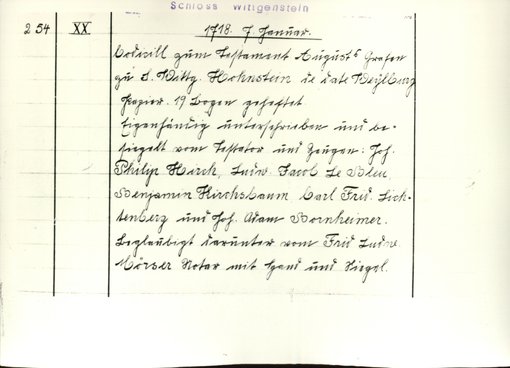 Schloss Wittgenstein
254 XX 1718. 7. Januar.
Codicill zum Testament August's Grafen
zu S. Wittg. Hohnstein de dato
Papier. 19 Bogen geheftet
Eigenhändig unterschrieben und be-
siegelt vom Testator und Zeugen: Joh.
Philip Hirck, Ludw. Jacob Le Bleu
Benjamin Hirchsbaum Carl Frid. Lich-
tenberg und Joh. Adam Bornheimer.
Beglaubigt darunter vom Frid Ludw.
Mörser Notar mit Hand und Siegel.